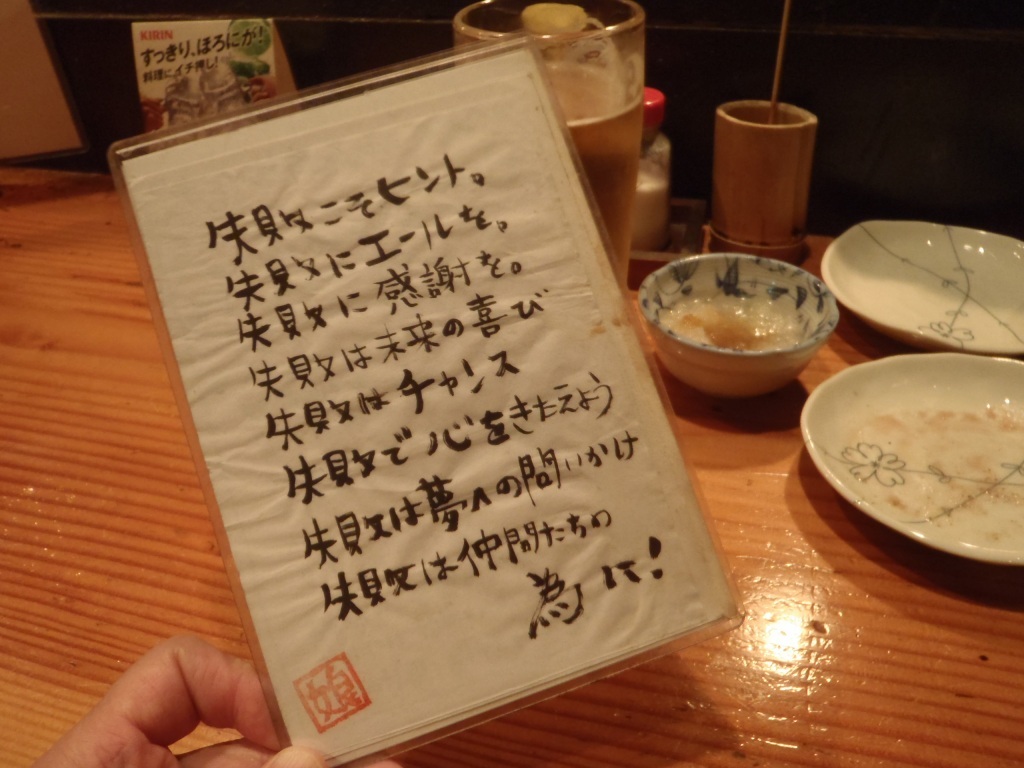 KIRIN
すっきり、ほろにが!
料理にイチ押し!
失敗こそヒント。
失敗にエールを。
失敗に感謝を。
失敗は未来の喜び
失敗はチャンス
失敗で心をきたえよう
失敗は夢への問いかけ
失敗は仲間たちの
為に!
娘